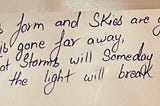 s form and Skies are g
is gone far away,
at Storms will Someday
the light will break